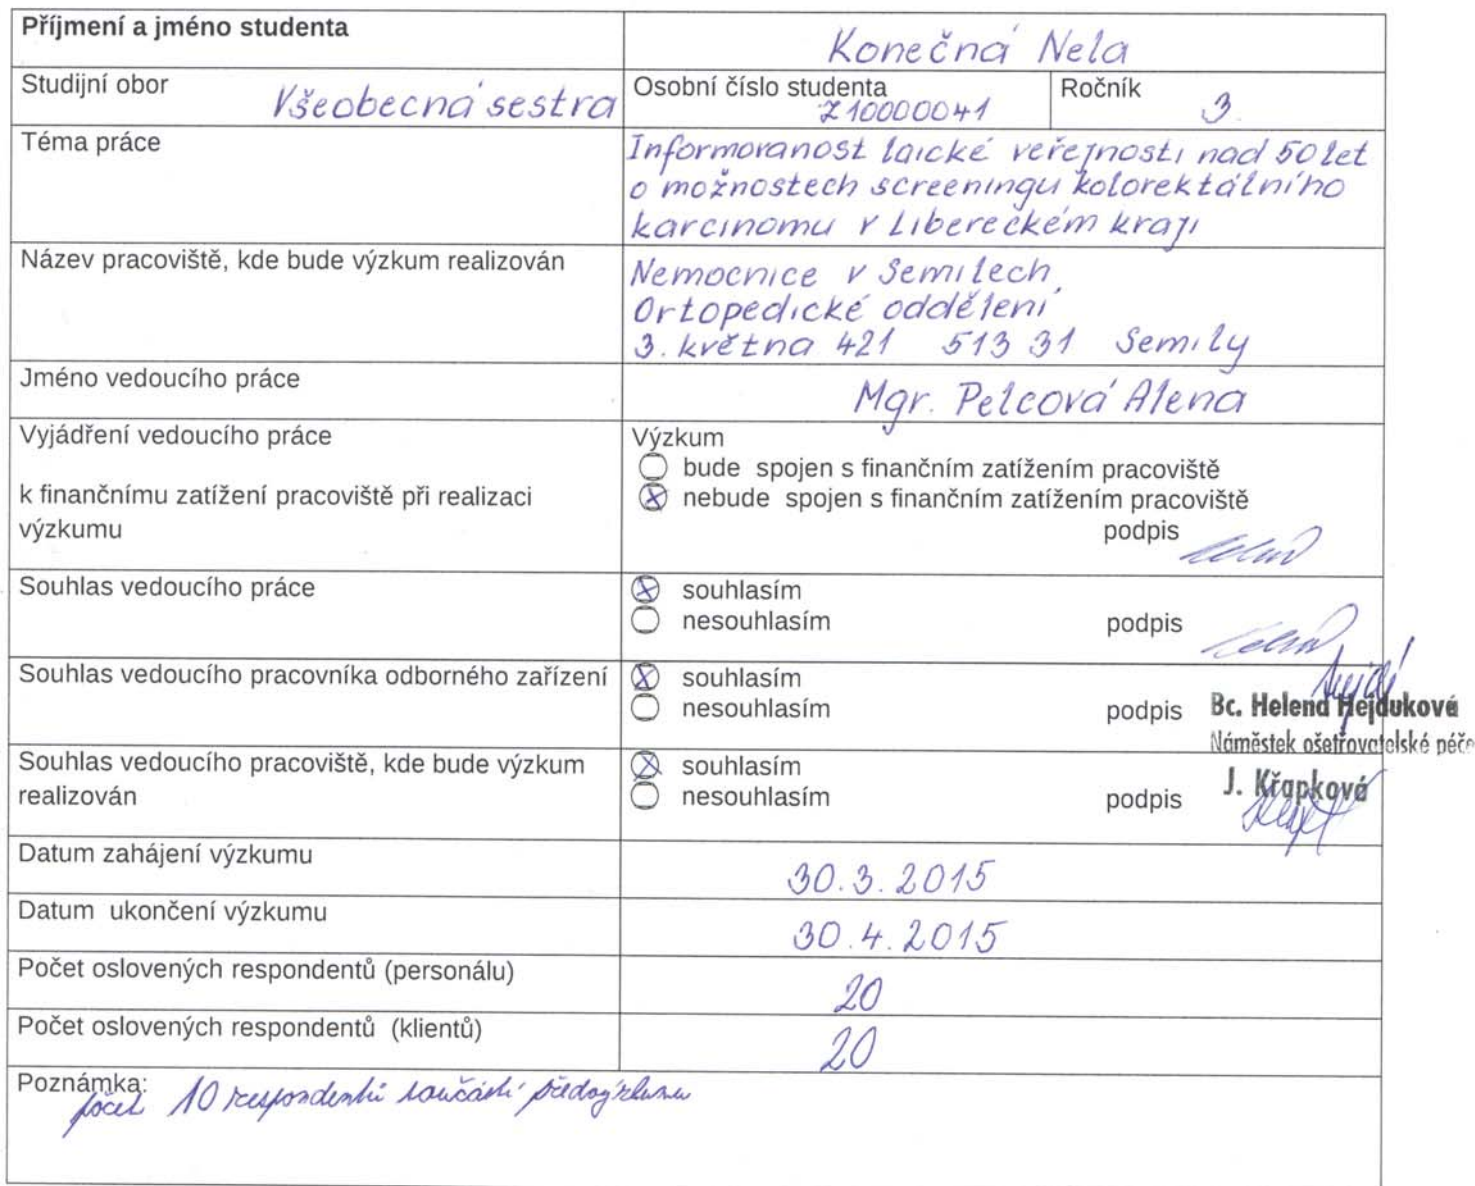 Příjmení a jméno studenta
Konečná Nela
Studijní obor
Všeobecná sestra
Osobní číslo studenta
Z10000041
Ročník
3.
Téma práce
Informovanost laické veřejnosti nad 50 let
o možnostech screeningu kolorektálního
karcinomu v Libereckém kraji
Název pracoviště, kde bude výzkum realizován
Nemocnice v Semilech,
Ortopedické oddělení
3. května 421 513 31 Semily
Jméno vedoucího práce
Mgr. Pelcová Alena
Vyjádření vedoucího práce
k finančnímu zatížení pracoviště při realizaci
výzkumu
Výzkum
bude spojen s finančním zatížením pracoviště
nebude spojen s finančním zatížením pracoviště
podpis
Souhlas vedoucího práce
souhlasím
nesouhlasím podpis
Souhlas vedoucího pracovníka odborného zařízení
souhlasím
nesouhlasím podpis
Bc. Helena Hejduková
Náměstek ošetřovatelské péče
Souhlas vedoucího pracoviště, kde bude výzkum
realizován
souhlasím
nesouhlasím podpis
J. Křapková
Datum zahájení výzkumu
30.3.2015
Datum ukončení výzkumu
30.4.2015
Počet oslovených respondentů (personálu)
20
Počet oslovených respondentů (klientů)
20
Poznámka:
počet 10 respondentů součástí předvýzkumu